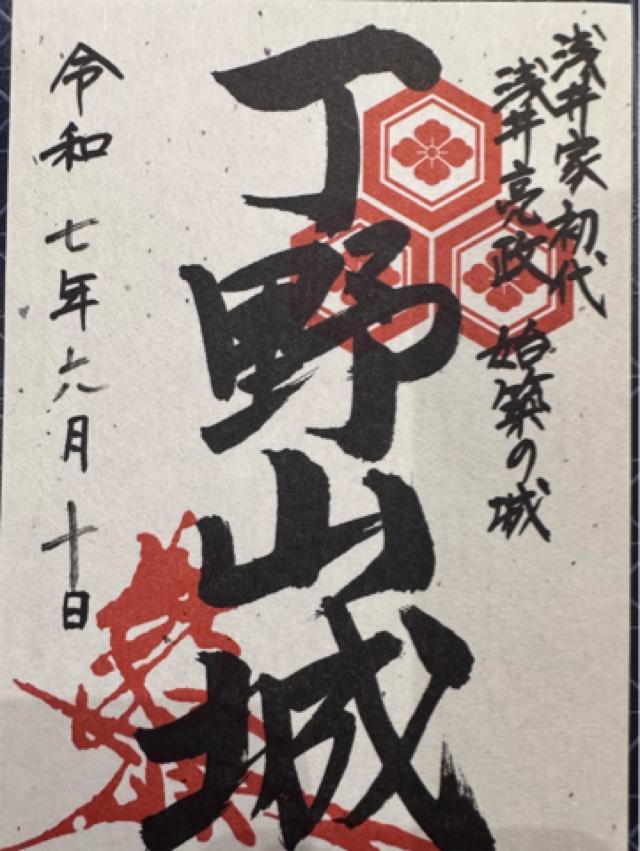 浅井家初代
浅井亮政 始築の城
丁野山城
令和七年六月十日